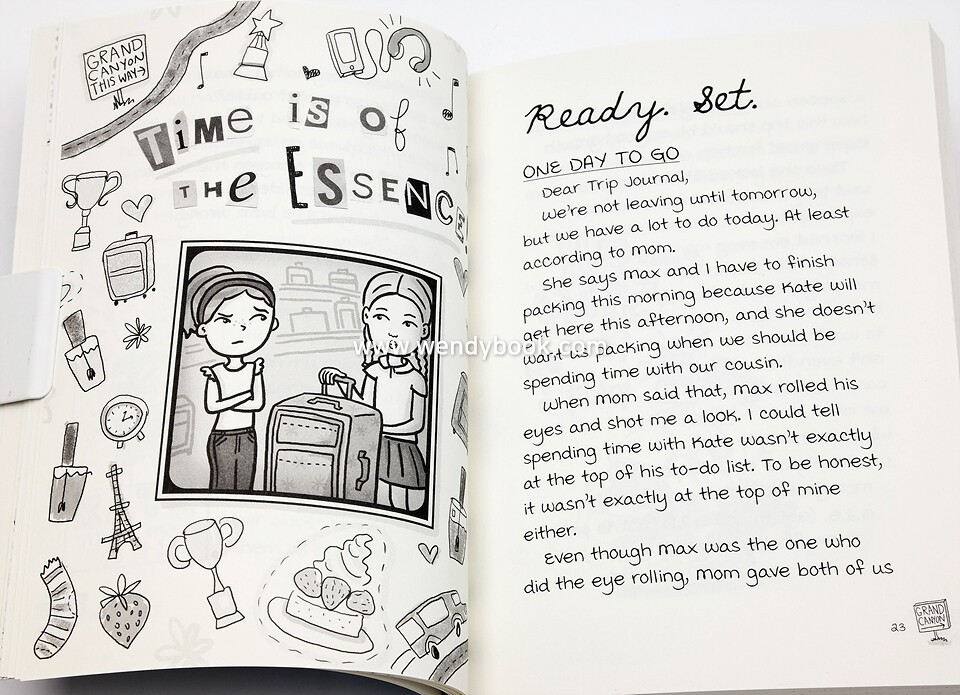 GRAND
CANYON
THIS WAY
Time is of
THE ESSENCE
www.wendybook.com
Ready. Set.
ONE DAY TO GO
Dear Trip Journal,
We're not leaving until tomorrow,
but we have a lot to do today. At least
according to mom.
She says max and I have to finish
packing this morning because Kate will
get here this afternoon, and she doesn't
want us packing when we should be
spending time with our cousin.
When mom said that, max rolled his
eyes and shot me a look. I could tell
spending time with Kate wasn't exactly
at the top of his to-do list. To be honest,
it wasn't exactly at the top of mine
either.
Even though max was the one who
did the eye rolling, mom gave both of us
23
GRAND
CANYON